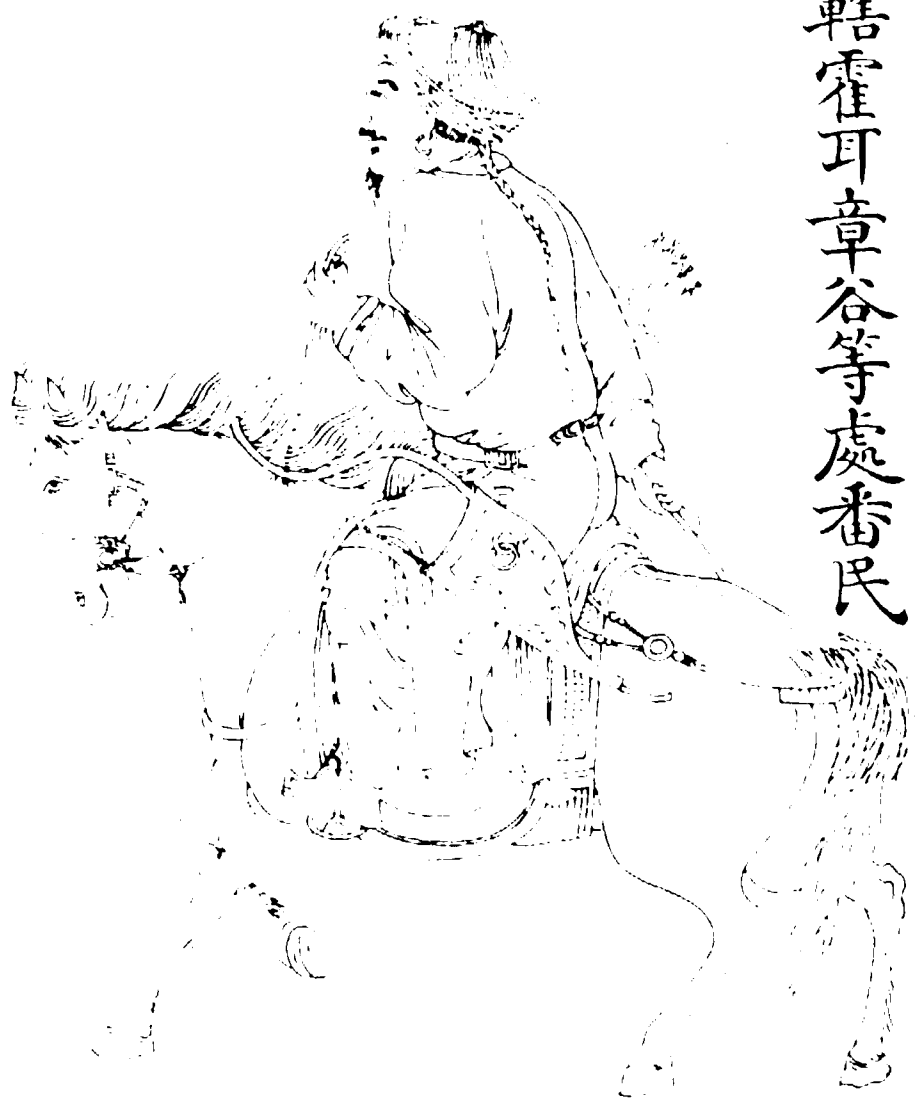 轄霍耳章谷等處番民